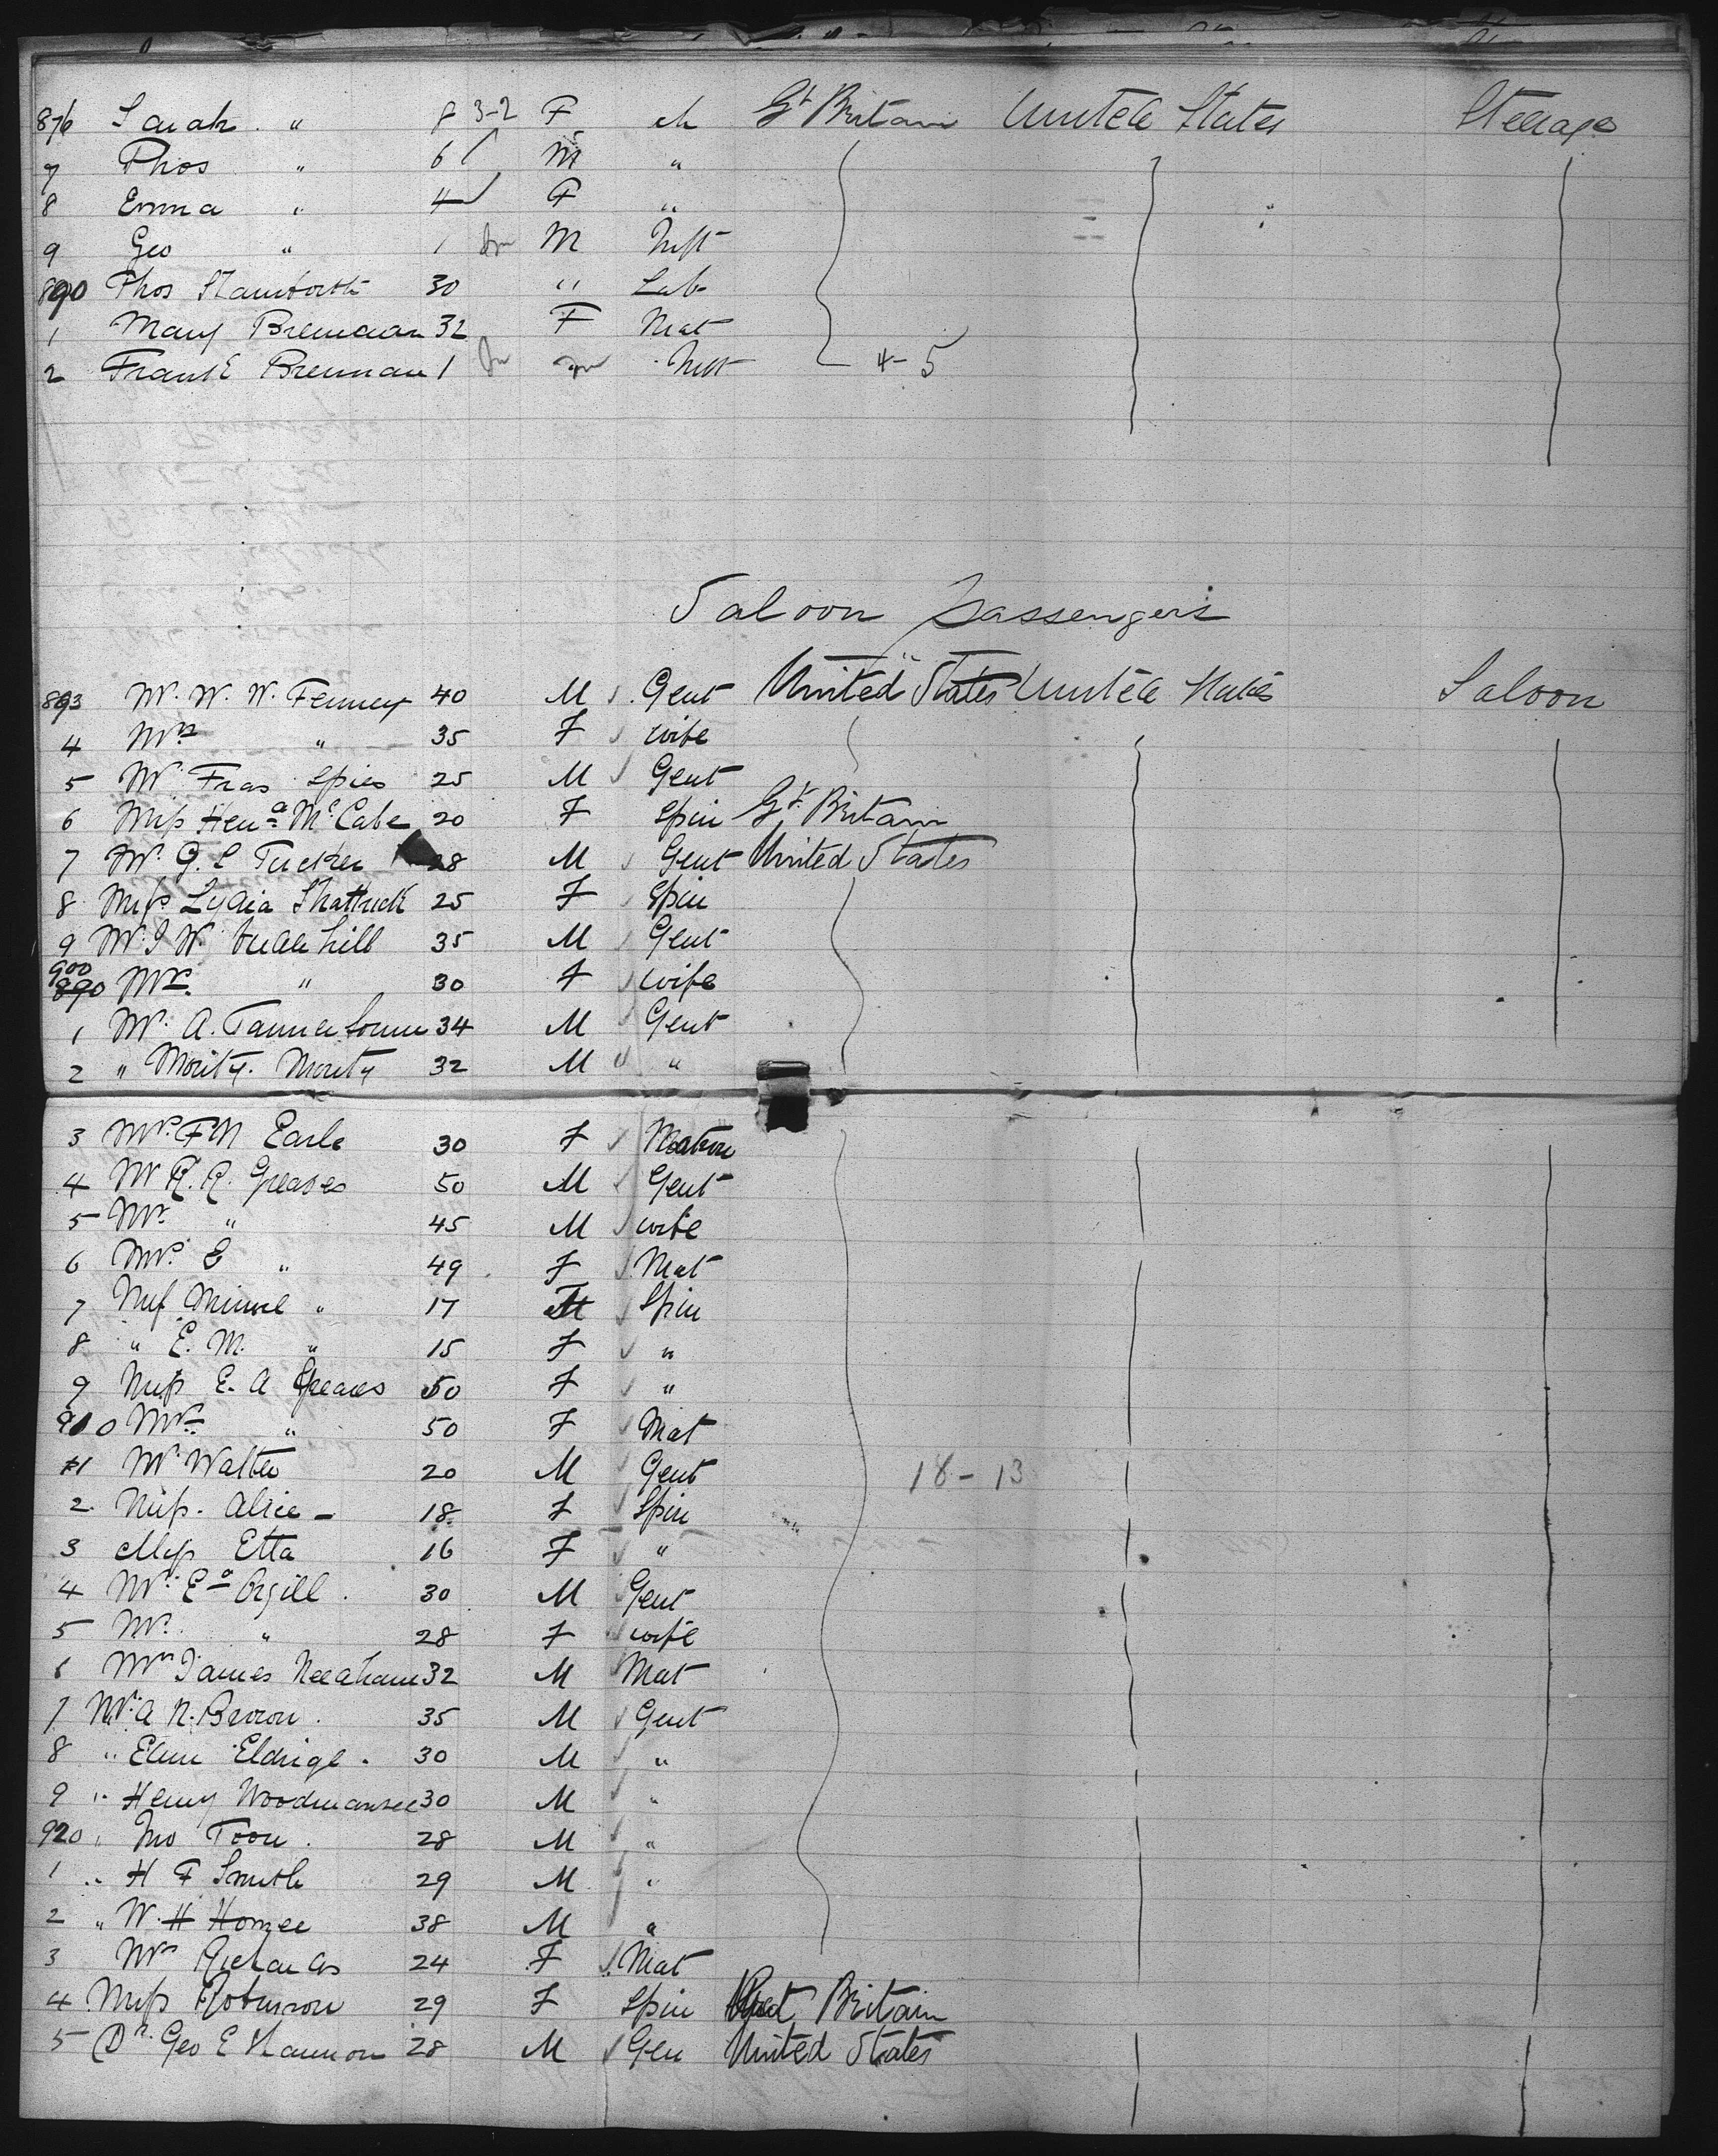 876 Sarah " 8 3-2 F ch Gt Britain United States Steerage
7 Thos " 6 M "
8 Emma " 4 F "
9 Geo " 1 M Inft
890 Thos 30 " Lab
1 Mary Brennan 32 F Mat
2 Frank E Brennan 1 Inft 4-5
Saloon Passengers
893 Mr. W. W. Fenney 40 M Gent United States United States Saloon
4 Mrs " 35 F wife
5 Mr Fras Spies 25 M Gent
6 Miss Hena McCabe 20 F Spin Gt Britain
7 Mr. G. L Tucker 28 M Gent United States
8 Miss Lydia Shattuck 25 F Spin
9 Mr. J W. 35 M Gent
900 890 Mrs. " 30 F wife
1 Mr. A. 34 M Gent
2 " Moritz. Moritz 32 M "
3 Mrs. F M Earle 30 F Matron
4 Mr R. R. Greaves 50 M Gent
5 Mrs " 45 M wife
6 Mrs. E " 49 F Mat
7 Miss Minnie " 17 F Spin
8 " E. M. " 15 F "
9 Miss E. A Greaves 50 F "
910 Mrs " 50 F Mat
11 Mr Walter 20 M Gent 18-13
2. Miss. Alice - 18 F Spin
3 Miss Etta 16 F "
4 Mr. Ed Orgill. 30 M Gent
5 Mrs. " 28 F wife
6 Mrs James Needham 32 M Mat
7 Mr. A N. Brown. 35 M Gent
8 " Eldrige. 30 M "
9 " Henry Woodmansee 30 M "
920 " Jno Toon. 28 M "
1 " H F Smith 29 M "
2 " W. H Homer 38 M "
3 Mrs Richards 24 F Mat
4 Miss Robinson 29 F Spin Great Britain
5 Dr. Geo E Hannon 28 M Gen United States